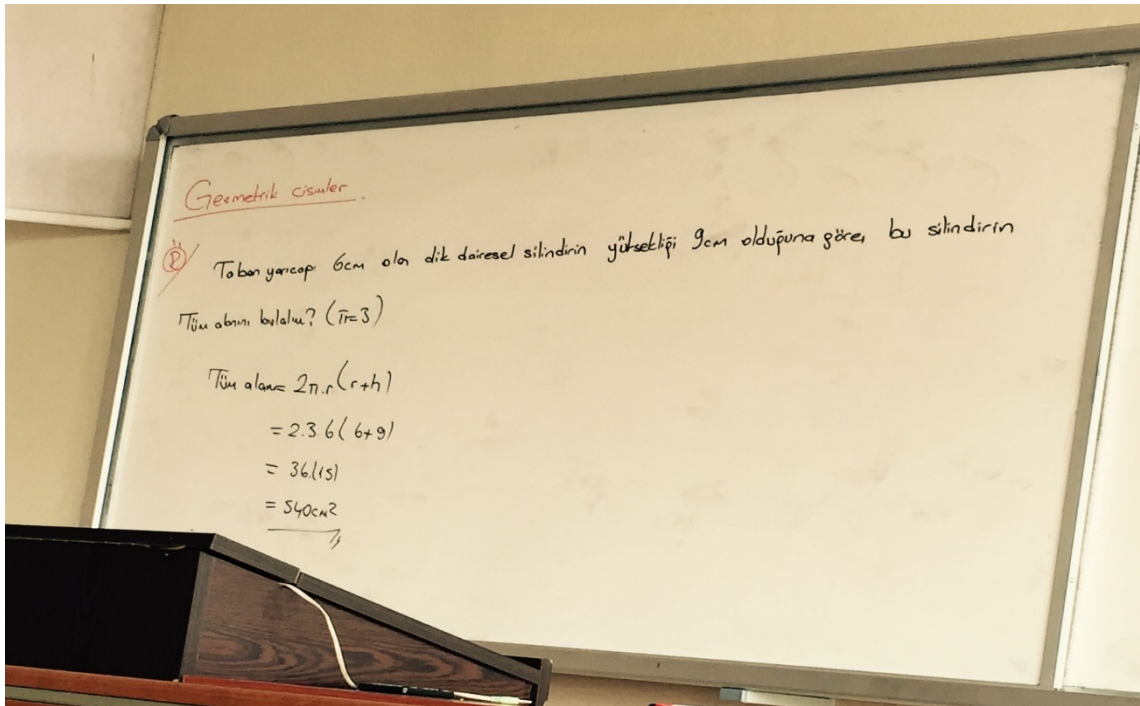 Geometrik cisimler.
Taban yarıçapı 6cm olan dik dairesel silindirin yüksekliği 9cm olduğuna göre, bu silindirin
Tüm alanını bulalım? (π=3)
Tüm alan= 2π.r(r+h)
= 2.3.6(6+9)
= 36.(15)
= 540cm²